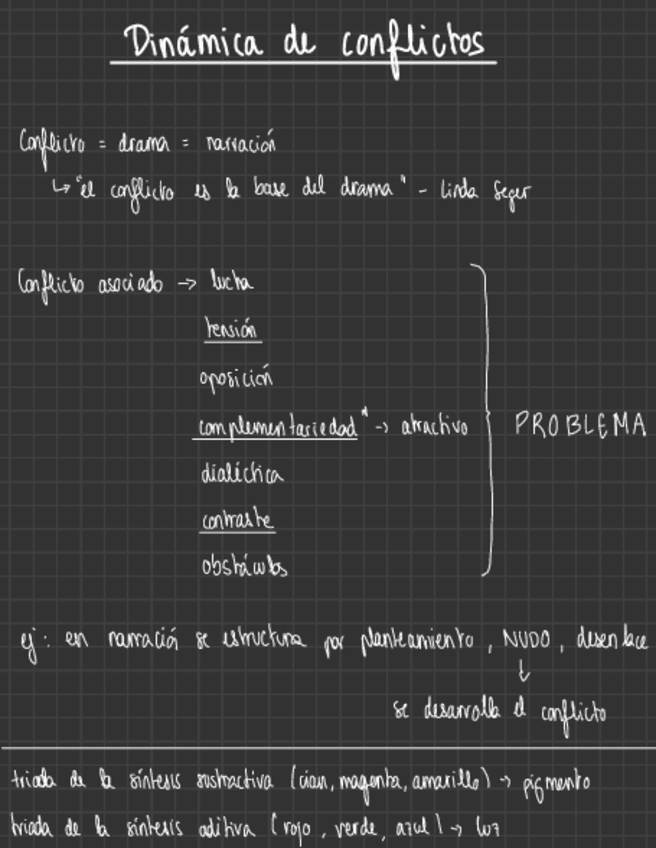 Dinámica de conflictos
Conflicto = drama = narración
↳ "el conflicto es la base del drama" - Linda Seger
Conflicto asociado → lucha
tensión
oposición
complementariedad* → atractivo
PROBLEMA
dialéctica
contraste
obstáculos
ej: en narración se estructura por planteamiento, NUDO, desenlace
↓
se desarrolla el conflicto
triada de la síntesis sustractiva (cian, magenta, amarillo) → pigmento
triada de la síntesis aditiva (rojo, verde, azul) → luz